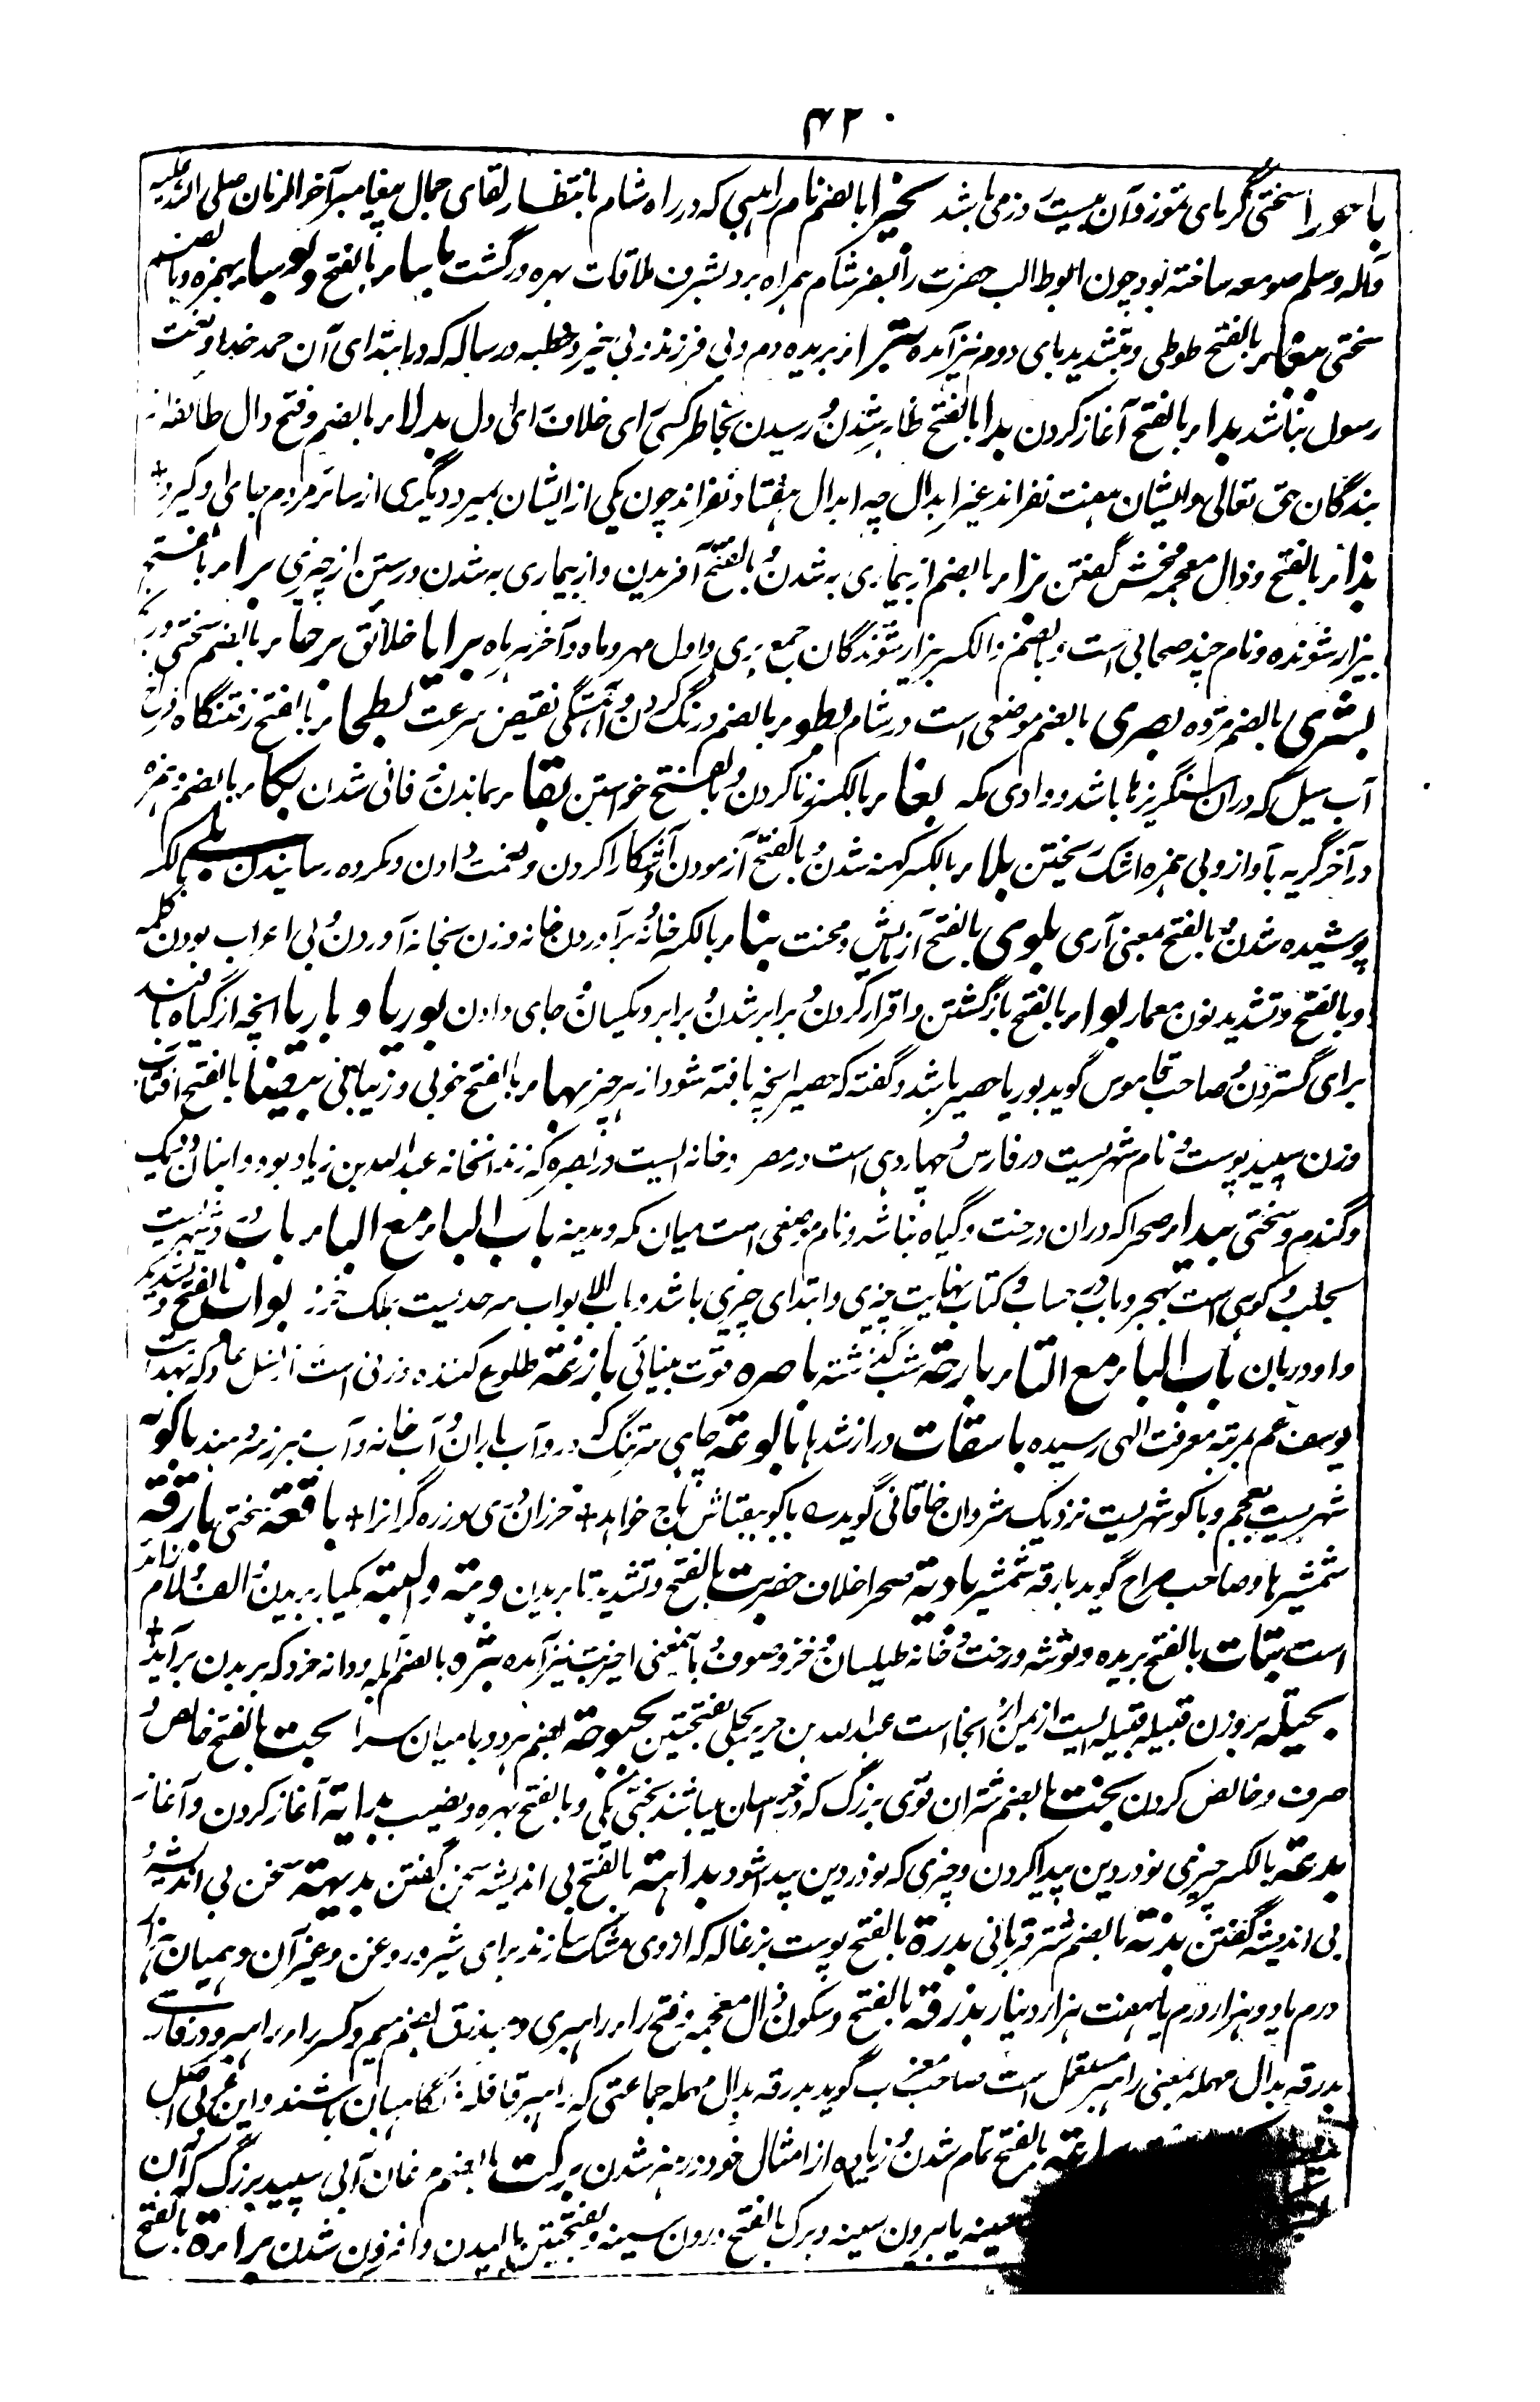 ۴۲۰
باحورا سختی گرمای تموز و آن بیست روز می باشد بحیرا بالضم نام راهبی که در راه شام بانتظار لقای جمال پیغامبر آخر الزمان صلی الله علیه
و آله و سلم صومعه ساخته بود چون ابوطالب حضرت را بسفر شام همراه برد بشرف ملاقات بهره ور گشت باساء بالفتح و بوساء بهمزه و بالضم
سختی ببغاء بالفتح طوطی و بتشدید بای دوم نیز آمده بتراء بریده دم و بی فرزند و بی خیر و خطبه و رساله که در ابتدای آن حمد خدا و نعت
رسول نباشد بداء بالفتح آغاز کردن بدا بالفتح ظاهر شدن و رسیدن بخاطر کسی رای خلاف رای اول بدلاء بالضم و فتح دال طائفه از
بندگان حق تعالی و ایشان هفت نفراند غیر ابدال چه ابدال هفتاد نفراند چون یکی از ایشان بمیرد دیگری از سائر مردم بجای او گیرد +
بذاء بالفتح و ذال معجمه فحش گفتن براء بالضم از بیماری به شدن و بالفتح آفریدن و از بیماری به شدن و رستن از چیزی براء بالفتح
بیزار شونده و نام چند صحابی است و بالضم و الکسر بیزار شوندگان جمع بری و اول مهر و ماه و آخر هر ماه برایا خلائق برحاء بالضم سختی و رنج
بشری بالضم مژده بصری بالضم موضعی است در شام بطوء بالضم درنگ کردن و آهستگی نقیض سرعت بطحاء بالفتح رفتنگاه فراخ
آب سیل که دران سنگریزها باشد و وادی مکه بغاء بالکسر زنا کردن و بالفتح خواستن بقاء بماندن فانی شدن بکاء بالضم و همزه
در آخر گریه بآواز و بی همزه اشک ریختن بلاء بالکسر کهنه شدن و بالفتح آزمودن و آشکارا کردن و نعمت دادن و مکروه رسانیدن بلی بالکسر
پوشیده شدن و بالفتح بمعنی آری بلوی بالفتح آزمایش و محنت بناء بالکسر خانه برآوردن خانه و زن بخانه آوردن و بی اعراب بودن کلمه
و بالفتح و تشدید نون معمار بواء بالفتح بازگشتن و اقرار کردن و برابر شدن و برابر و یکسان و جای دادن بوریا و باریا آنچه از گیاه بافند
برای گستردن و صاحب قاموس گوید بوریا حصیر باشد و گفته که حصیر آنچه بافته شود از هر چیز بهاء بالفتح خوبی و زیبائی بیضا بالفتح آفتاب
و زن سپید پوست و نام شهریست در فارس و چهار دهی است در مصر و خانه ایست در بصره که زندانخانه عبدالله بن زیاد بود و انبان و دیگ
و گندم و سختی بیداء صحرا که دران درخت و گیاه نباشد و نام موضعی است میان مکه و مدینه باب الباء مع الباء باب در و شهریست
بحلب و کوهی است بهجر و باب در حساب و کتاب نهایت چیزی و ابتدای چیزی باشد و باب الابواب سرحدیست بملک خزر بواب بالفتح و تشدید
واو دربان باب الباء مع التاء بارحة شب گذشته باصره قوت بینائی بازغة طلوع کننده و زنی است از نسل عاد که بهدایت
یوسف عم بمرتبه معرفت الهی رسیده باسقات دراز شدها بالوعة چاهی سر تنگ که درو آب باران و آب خانه و آب مبرز روند باکویه
شهریست بعجم و باکو شهریست نزدیک شروان خاقانی گوید باکو ببقاش باج خواهد + خزران و ری و زره گران را + باقعة سختی بارقة
شمشیرها و صاحب صراح گوید بارقه شمشیر بادیة صحرا خلاف حضر بت بالفتح و تشدید تا بریدن و بتة و البتة یکبار بریدن و الف و لام زائد
است بتات بالفتح بریده و توشه و رخت خانه طیلسان و خز و صوف و بمعنی اخیر بت نیز آمده بثره بالضم آبله و دانه خرد که بر بدن برآید +
بجیلة بروزن قبیله قبیله ایست از یمن از انجا است عبدالله بن جریر بجلی بفتحتین بحبوحة بضم هر دو با میان سرا بحت بالفتح خالص و
صرف و خالص کردن بخت بالضم شتران قوی بزرگ که در خراسان میباشند بختی یکی و بالفتح بهره و نصیب بدایة آغاز کردن و آغاز
بدعة بالکسر چیزی نو در دین پیدا کردن و چیزی که نو در دین پیدا شود بداهة بالفتح بی اندیشه سخن گفتن بدیهة سخن بی اندیشه و
بی اندیشه گفتن بدنة بالضم شتر قربانی بدرة بالفتح پوست بزغاله که ازوی مشک سازند برای شیر و روغن و غیر آن و همیان هزار
درم یا دو هزار درم یا هفت هزار دینار بذرقة بالفتح و سکون ذال معجمه و فتح را راهبری و مبذرق بضم میم و کسر را راهبر و در فارسی
بدرقه بدال مهمله بمعنی راهبر مستعمل است صاحب مغرب گوید بدرقه بدال مهمله جماعتی که راهبر قافله و نگاهبان باشند و این غیر عربی اصل
براعة بالفتح تمام شدن و زیاده از امثال خود در هنر شدن برکت بالضم مرغان آبی سپید بزرگ که آن
سینه یا بیرون سینه و برک بالفتح درون سینه و بفتحتین بالیدن و افزون شدن براءة بالفتح